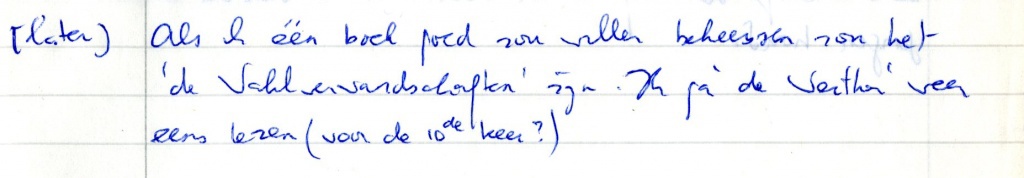 [later] Als ik één boek goed zou willen beheersen zou het
'de Wahlverwandschaften' zijn. Ik ga de Werther weer
eens lezen (voor de 10de keer?)